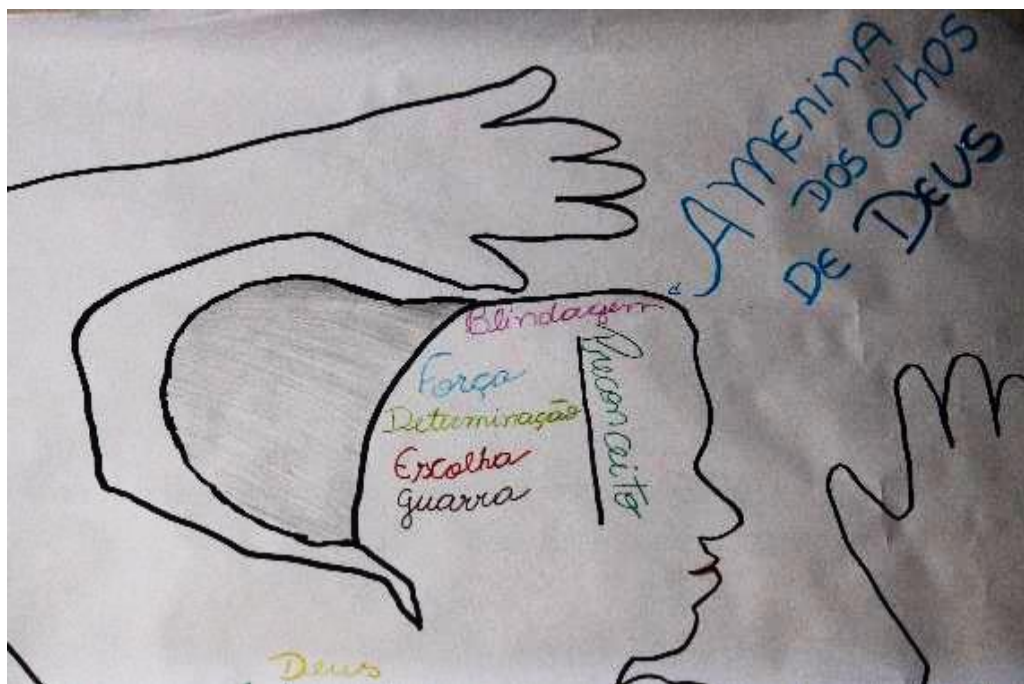 A MENINA
DOS OLHOS
DE DEUS
Blindagem
Preconceito
Força
Determinação
Escolha
guarra
Deus